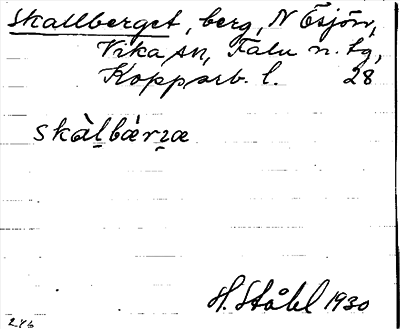 Skallberget, berg, N Ösjön,
Vika sn, Falu n. tg,
Kopparb. l. 28
skàl̠bǽrɪæ
H. Ståhl 1930
246